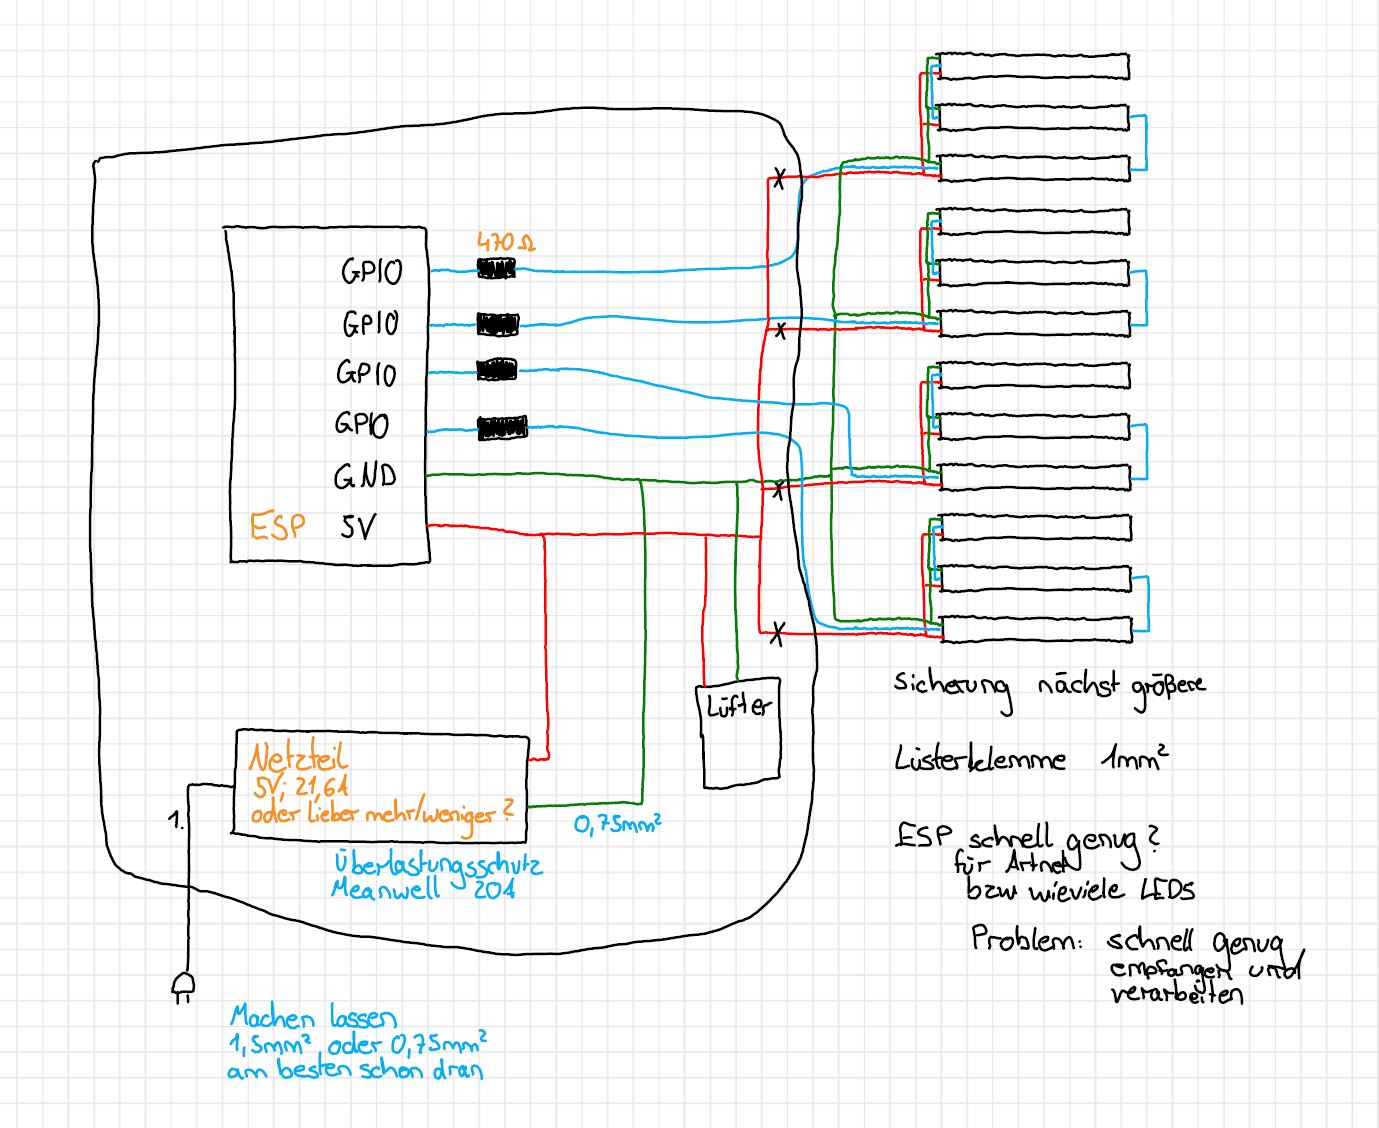 470 Ω
GPIO
GPIO
GPIO
GPIO
GND
ESP 5V
Lüfter
Netzteil
5V; 21,6A
oder lieber mehr/weniger?
1.
0,75mm²
Überlastungsschutz
Meanwell 20A
Machen lassen
1,5mm² oder 0,75mm²
am besten schon dran
Sicherung nächst größere
Lüsterklemme 1mm²
ESP schnell genug?
für Artnet
bzw wieviele LEDs
Problem: schnell genug
empfangen und
verarbeiten